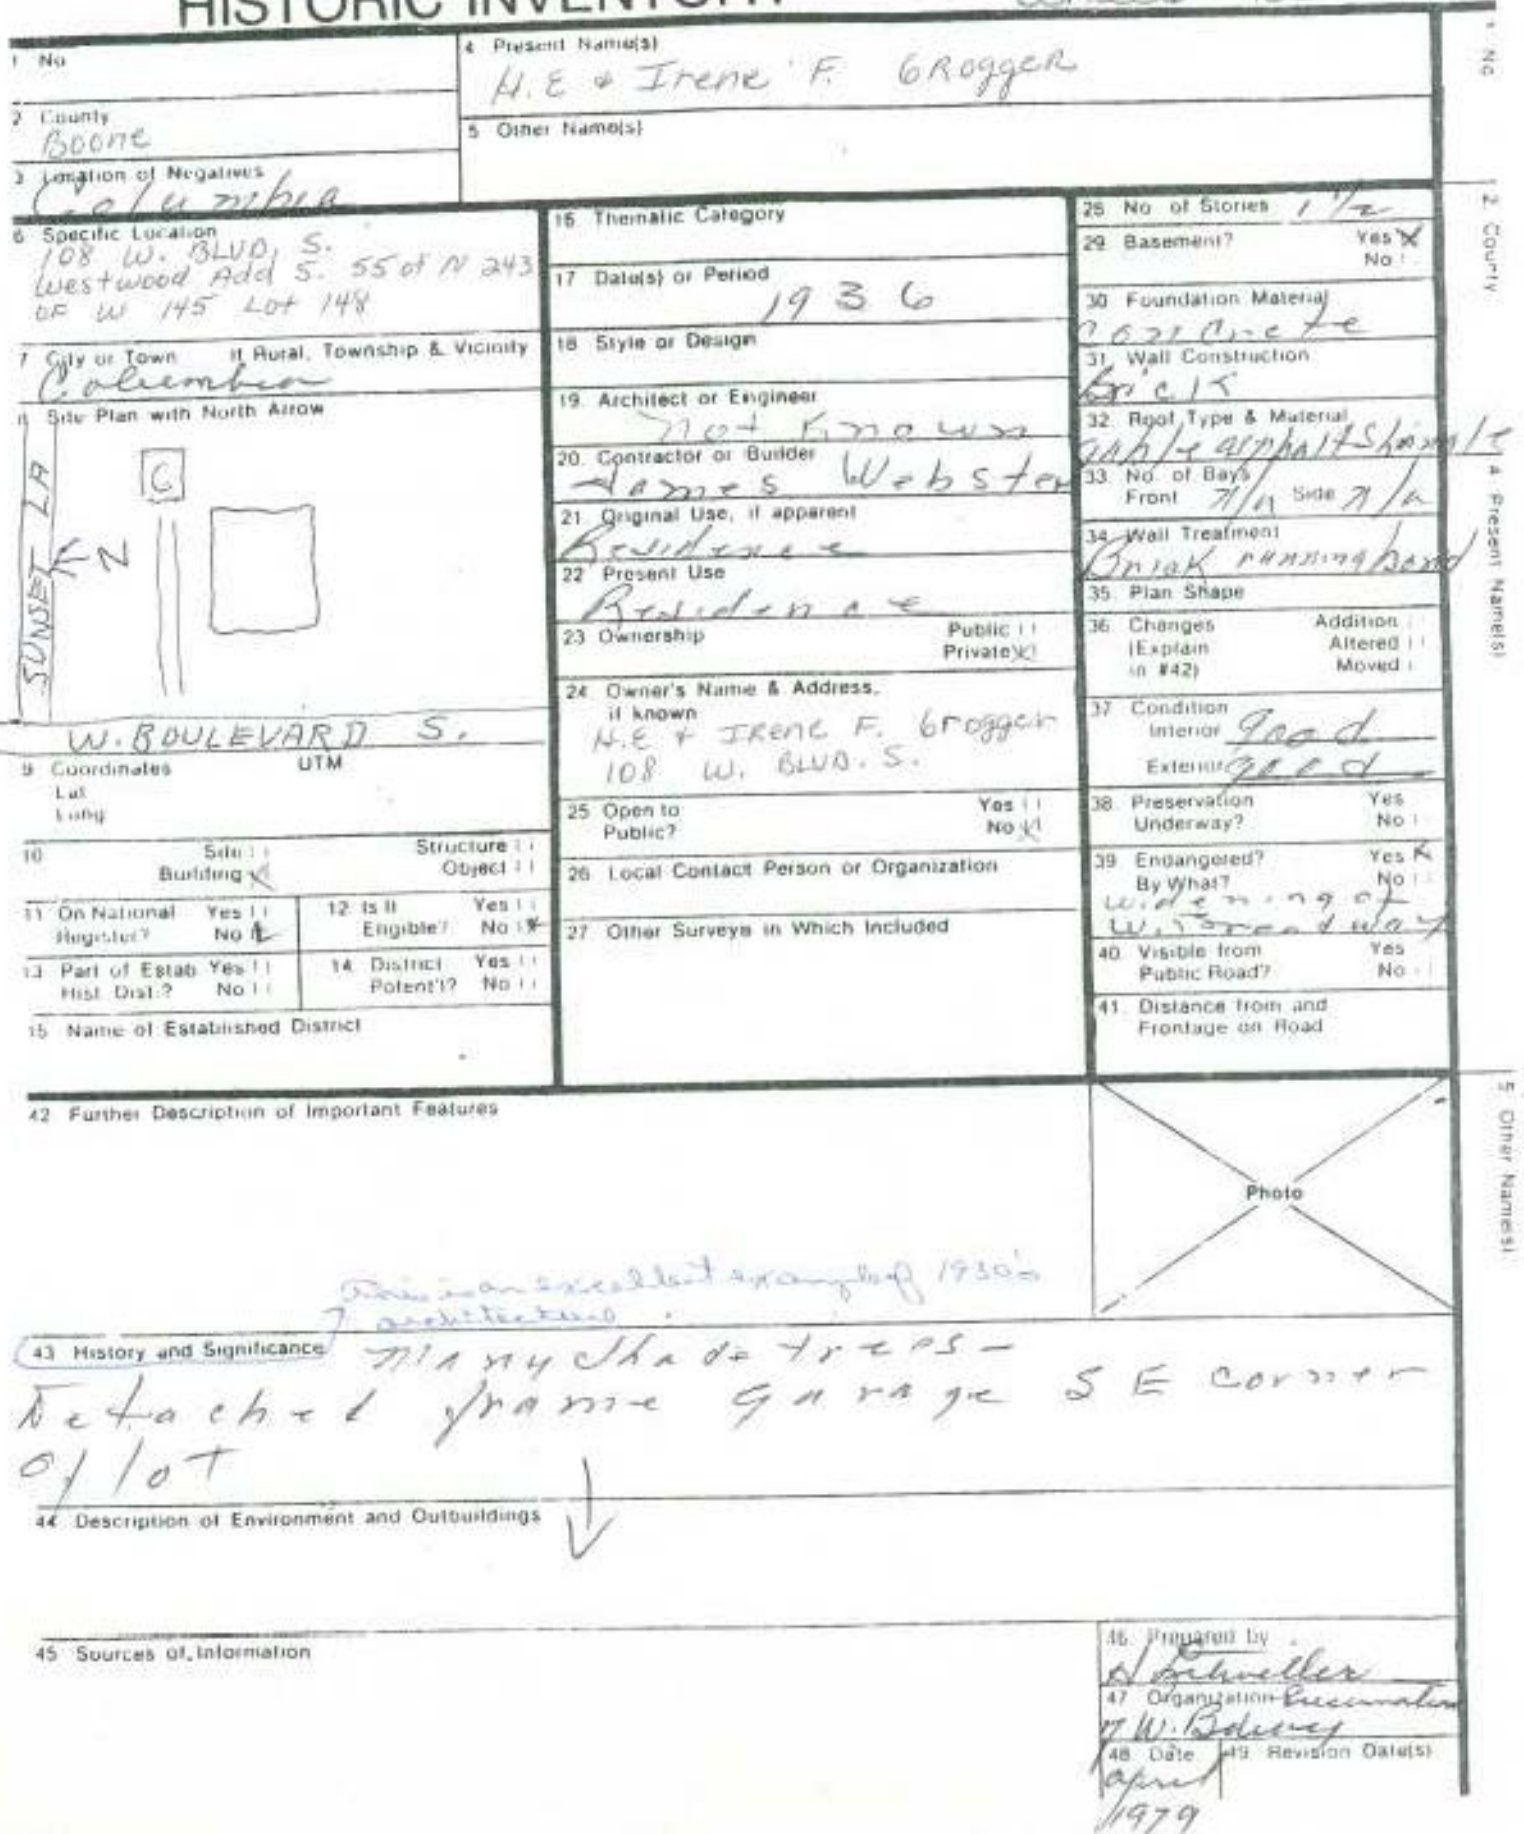 HISTORIC INVENTORY
1 No
4 Present Name(s)
H.E & Irene F. Grogger
2 County
Boone
5 Other Name(s)
3 Location of Negatives
Columbia
6 Specific Location
108 W. BLVD, S.
Westwood Add S. 55 of N 243
OF W 145 Lot 148
7 City or Town If Rural, Township & Vicinity
Columbia
8 Site Plan with North Arrow
SUNSET LA
G
N
W. BOULEVARD S.
9 Coordinates UTM
Lat
Long
10 Site Structure
Building Object
11 On National Yes
Register? No
12 Is It Yes
Eligible? No
13 Part of Estab Yes
Hist. Dist.? No
14 District Yes
Potent'l? No
15 Name of Established District
16 Thematic Category
17 Date(s) or Period
1936
18 Style or Design
19 Architect or Engineer
not known
20 Contractor or Builder
James Webster
21 Original Use, if apparent
Residence
22 Present Use
Residence
23 Ownership Public
Private
24 Owner's Name & Address,
if known
H.E & IRENE F. Grogger
108 W. BLVD. S.
25 Open to Yes
Public? No
26 Local Contact Person or Organization
27 Other Surveys in Which Included
28 No of Stories 1 1/2
29 Basement? Yes
No
30 Foundation Material
concrete
31 Wall Construction
brick
32 Roof Type & Material
gable asphalt shingle
33 No. of Bays
Front n/a Side n/a
34 Wall Treatment
Brick running bond
35 Plan Shape
36 Changes Addition
(Explain Altered
in #42) Moved
37 Condition
Interior good
Exterior good
38 Preservation Yes
Underway? No
39 Endangered? Yes
By What? No
widening of
W. Broadway
40 Visible from Yes
Public Road? No
41 Distance from and
Frontage on Road
42 Further Description of Important Features
Photo
This is an excellent example of 1930's
architecture
43 History and Significance
Many shade trees -
Detached frame garage SE corner
of lot
44 Description of Environment and Outbuildings
45 Sources of Information
46 Prepared by
47 Organization
48 Date 49 Revision Date(s)
April
1979
1 No
2 County
4 Present Name(s)
5 Other Name(s)